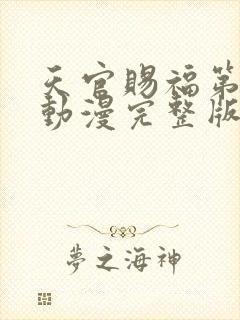 天官賜福第
動漫完整版
夢之海神